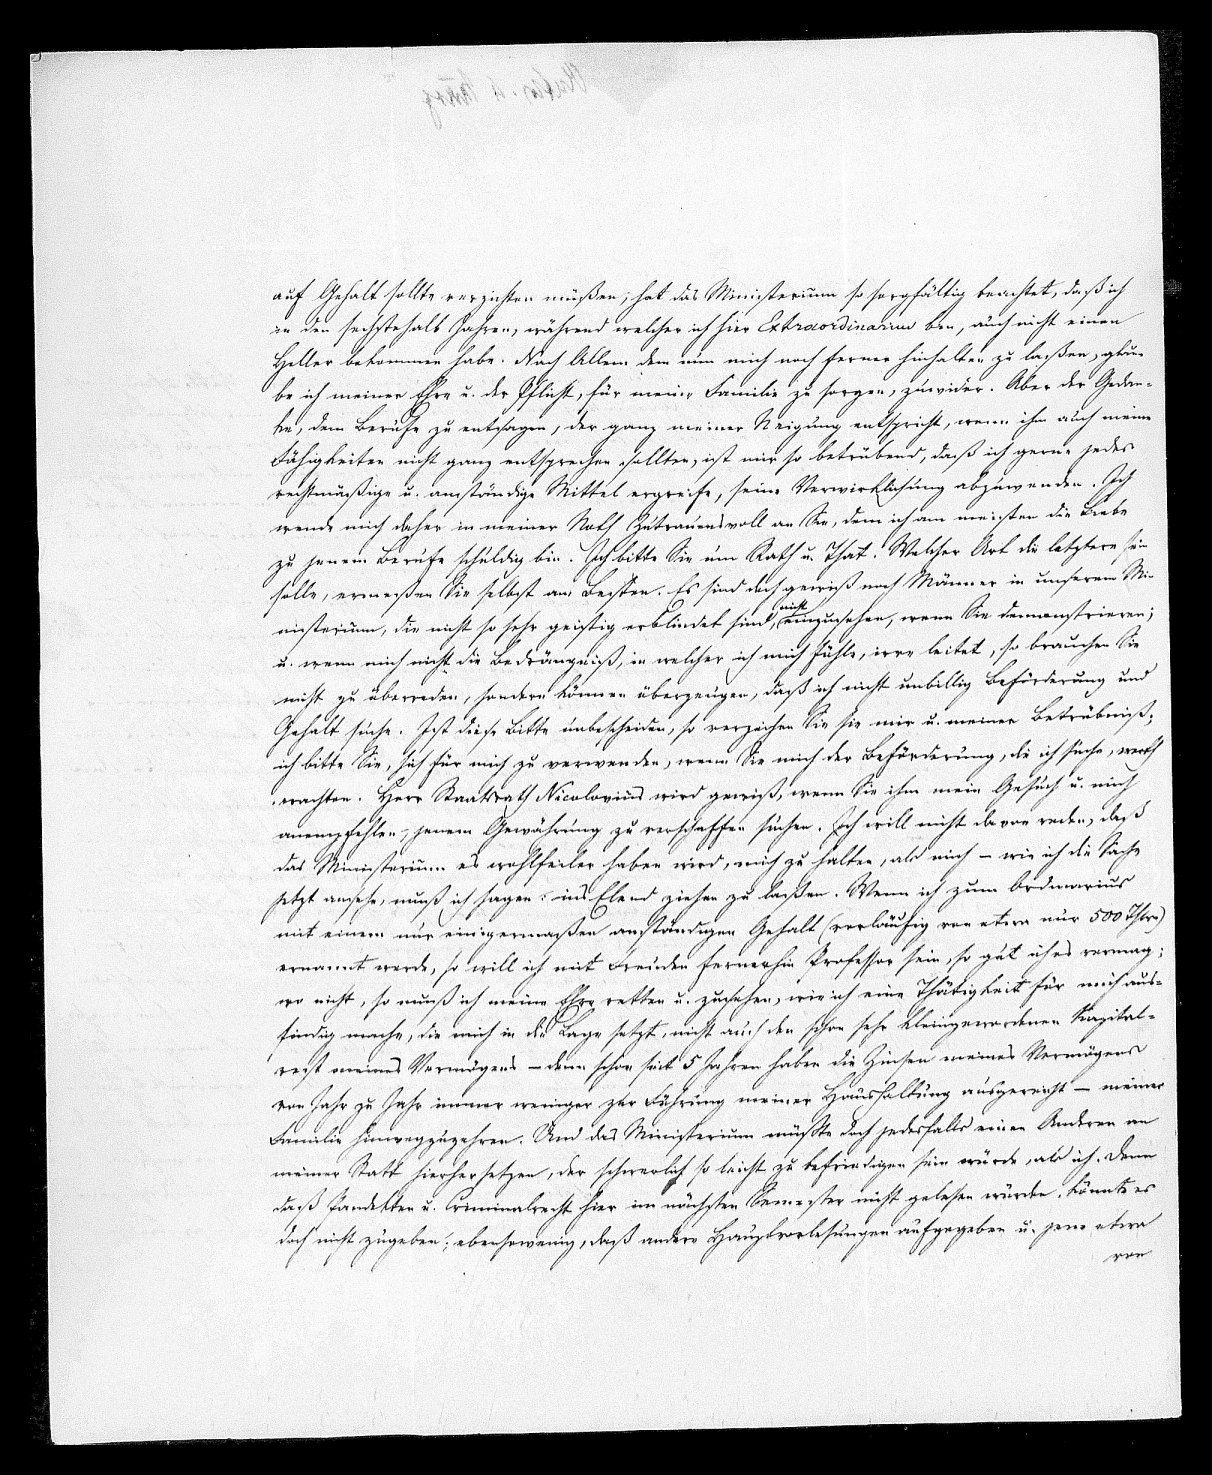 auf Gehalt sollte verzichten müßen, hat das Ministerium so sorgfältig beachtet, daß ich
in den sechstehalb Jahren, während welcher ich hier Extraordinarius bin, auch nicht einen
Heller bekommen habe. Nach Allem dem nun mich noch ferner hinhalten zu laßen, glau-
be ich meiner Ehre u. der Pflicht, für meine Familie zu sorgen, zuwider. Aber der Gedan-
ke, dem Berufe zu entsagen, der ganz meiner Neigung entspricht, wenn ihm auch meine
Fähigkeiten nicht ganz entsprechen sollten, ist mir so betrübend, daß ich gerne jedes
rechtmäßige u. anständige Mittel ergreife, seine Verwirklichung abzuwenden. Ich
wende mich daher in meiner Noth zutrauensvoll an Sie, dem ich am meisten die Liebe
zu jenem Berufe schuldig bin. Ich bitte Sie um Rath u. That. Welcher Art die letztere sein
solle, ermeßen Sie selbst am Besten. Es sind doch gewiß noch Männer in unserem Mi-
nisterium, die nicht so sehr geistig erblindet sind, nicht einzusehen, wenn Sie demonstrieren;
u. wenn mich nicht die Bedrängniß, in welcher ich mich fühle, irre leitet, so brauchen Sie
nicht zu überreden, sondern können überzeugen, daß ich nicht unbillig Beförderung und
Gehalt suche. Ist diese Bitte unbescheiden, so verzeihen Sie sie mir u. meiner Betrübniß;
ich bitte Sie, sich für mich zu verwenden, wenn Sie mich der Beförderung, die ich suche, werth
erachten. Herr Staatsrath Nicolovius wird gewiß, wenn Sie ihm mein Gesuch u. mich
anempfehlen, jenem Gewährung zu verschaffen suchen. Ich will nicht davon reden, daß
das Ministerium es wohlfeiler haben wird, mich zu halten, als mich – wie ich die Sache
jetzt ansehe, muß ich sagen: ins Elend ziehen zu laßen. Wenn ich zum Ordinarius
mit einem nur einigermaßen anständigen Gehalt (vorläufig von etwa nur 500 Thlrn)
ernannt werde, so will ich mit Freuden fernerhin Professor sein, so gut ich es vermag;
wo nicht, so muß ich meine Ehre retten u. zusehen, wie ich eine Thätigkeit für mich aus-
findig mache, die mich in die Lage setzt, nicht auch den schon sehr kleingewordenen Kapital-
rest meines Vermögens – denn schon seit 5 Jahren haben die Zinsen meines Vermögens
von Jahr zu Jahr immer weniger zur Führung meiner Haushaltung ausgereicht – meiner
Familie hinwegzuzehren. Und das Ministerium müßte doch jedesfalls einen Anderen an
meiner Statt hierhersetzen, der schwerlich so leicht zu befriedigen sein würde, als ich. Denn
daß Pandekten u. Criminalrecht hier im nächsten Semester nicht gelesen würden, könnte es
doch nicht zugeben; ebensowenig, daß andere Hauptvorlesungen aufgegeben u. jene etwa
von